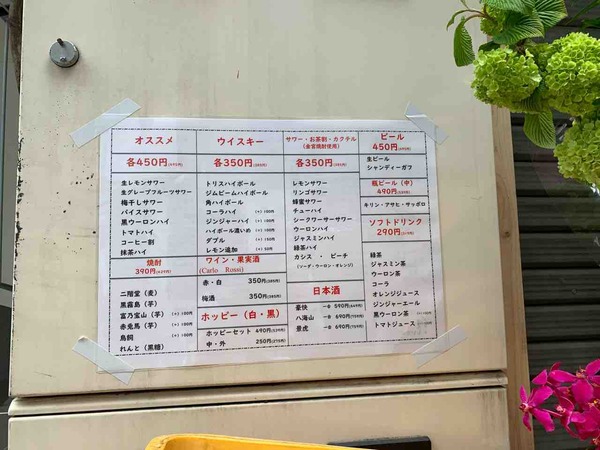 オススメ
各450円(495円)
生レモンサワー
生グレープフルーツサワー
梅干しサワー
バイスサワー
黒ウーロンハイ
トマトハイ
コーヒー割
抹茶ハイ
焼酎
390円(429円)
二階堂（麦）
黒霧島（芋）
富乃宝山（芋） (+)100円
赤兎馬（芋） (+)100円
鳥飼 (+)100円
れんと（黒糖）
ウイスキー
各350円(385円)
トリスハイボール
ジムビームハイボール
角ハイボール
コーラハイ (+)50円
ジンジャーハイ (+)50円
ハイボール濃いめ (+)100円
ダブル (+)150円
レモン追加 (+)50円
ワイン・果実酒
(Carlo Rossi)
赤・白 350円(385円)
梅酒 350円(385円)
ホッピー（白・黒）
ホッピーセット 490円(539円)
中・外 250円(275円)
サワー・お茶割・カクテル
(金宮焼酎使用)
各350円(385円)
レモンサワー
リンゴサワー
蜂蜜サワー
チューハイ
シークワーサーサワー
ウーロンハイ
ジャスミンハイ
緑茶ハイ
カシス ・ ピーチ
(ソーダ・ウーロン・オレンジ)
日本酒
豪快 一合 590円(649円)
八海山 一合 690円(759円)
景虎 一合 690円(759円)
ビール
450円(495円)
生ビール
シャンディーガフ
瓶ビール（中）
490円(539円)
キリン・アサヒ・サッポロ
ソフトドリンク
290円(319円)
緑茶
ジャスミン茶
ウーロン茶
コーラ
オレンジジュース
ジンジャーエール
黒ウーロン茶
トマトジュース